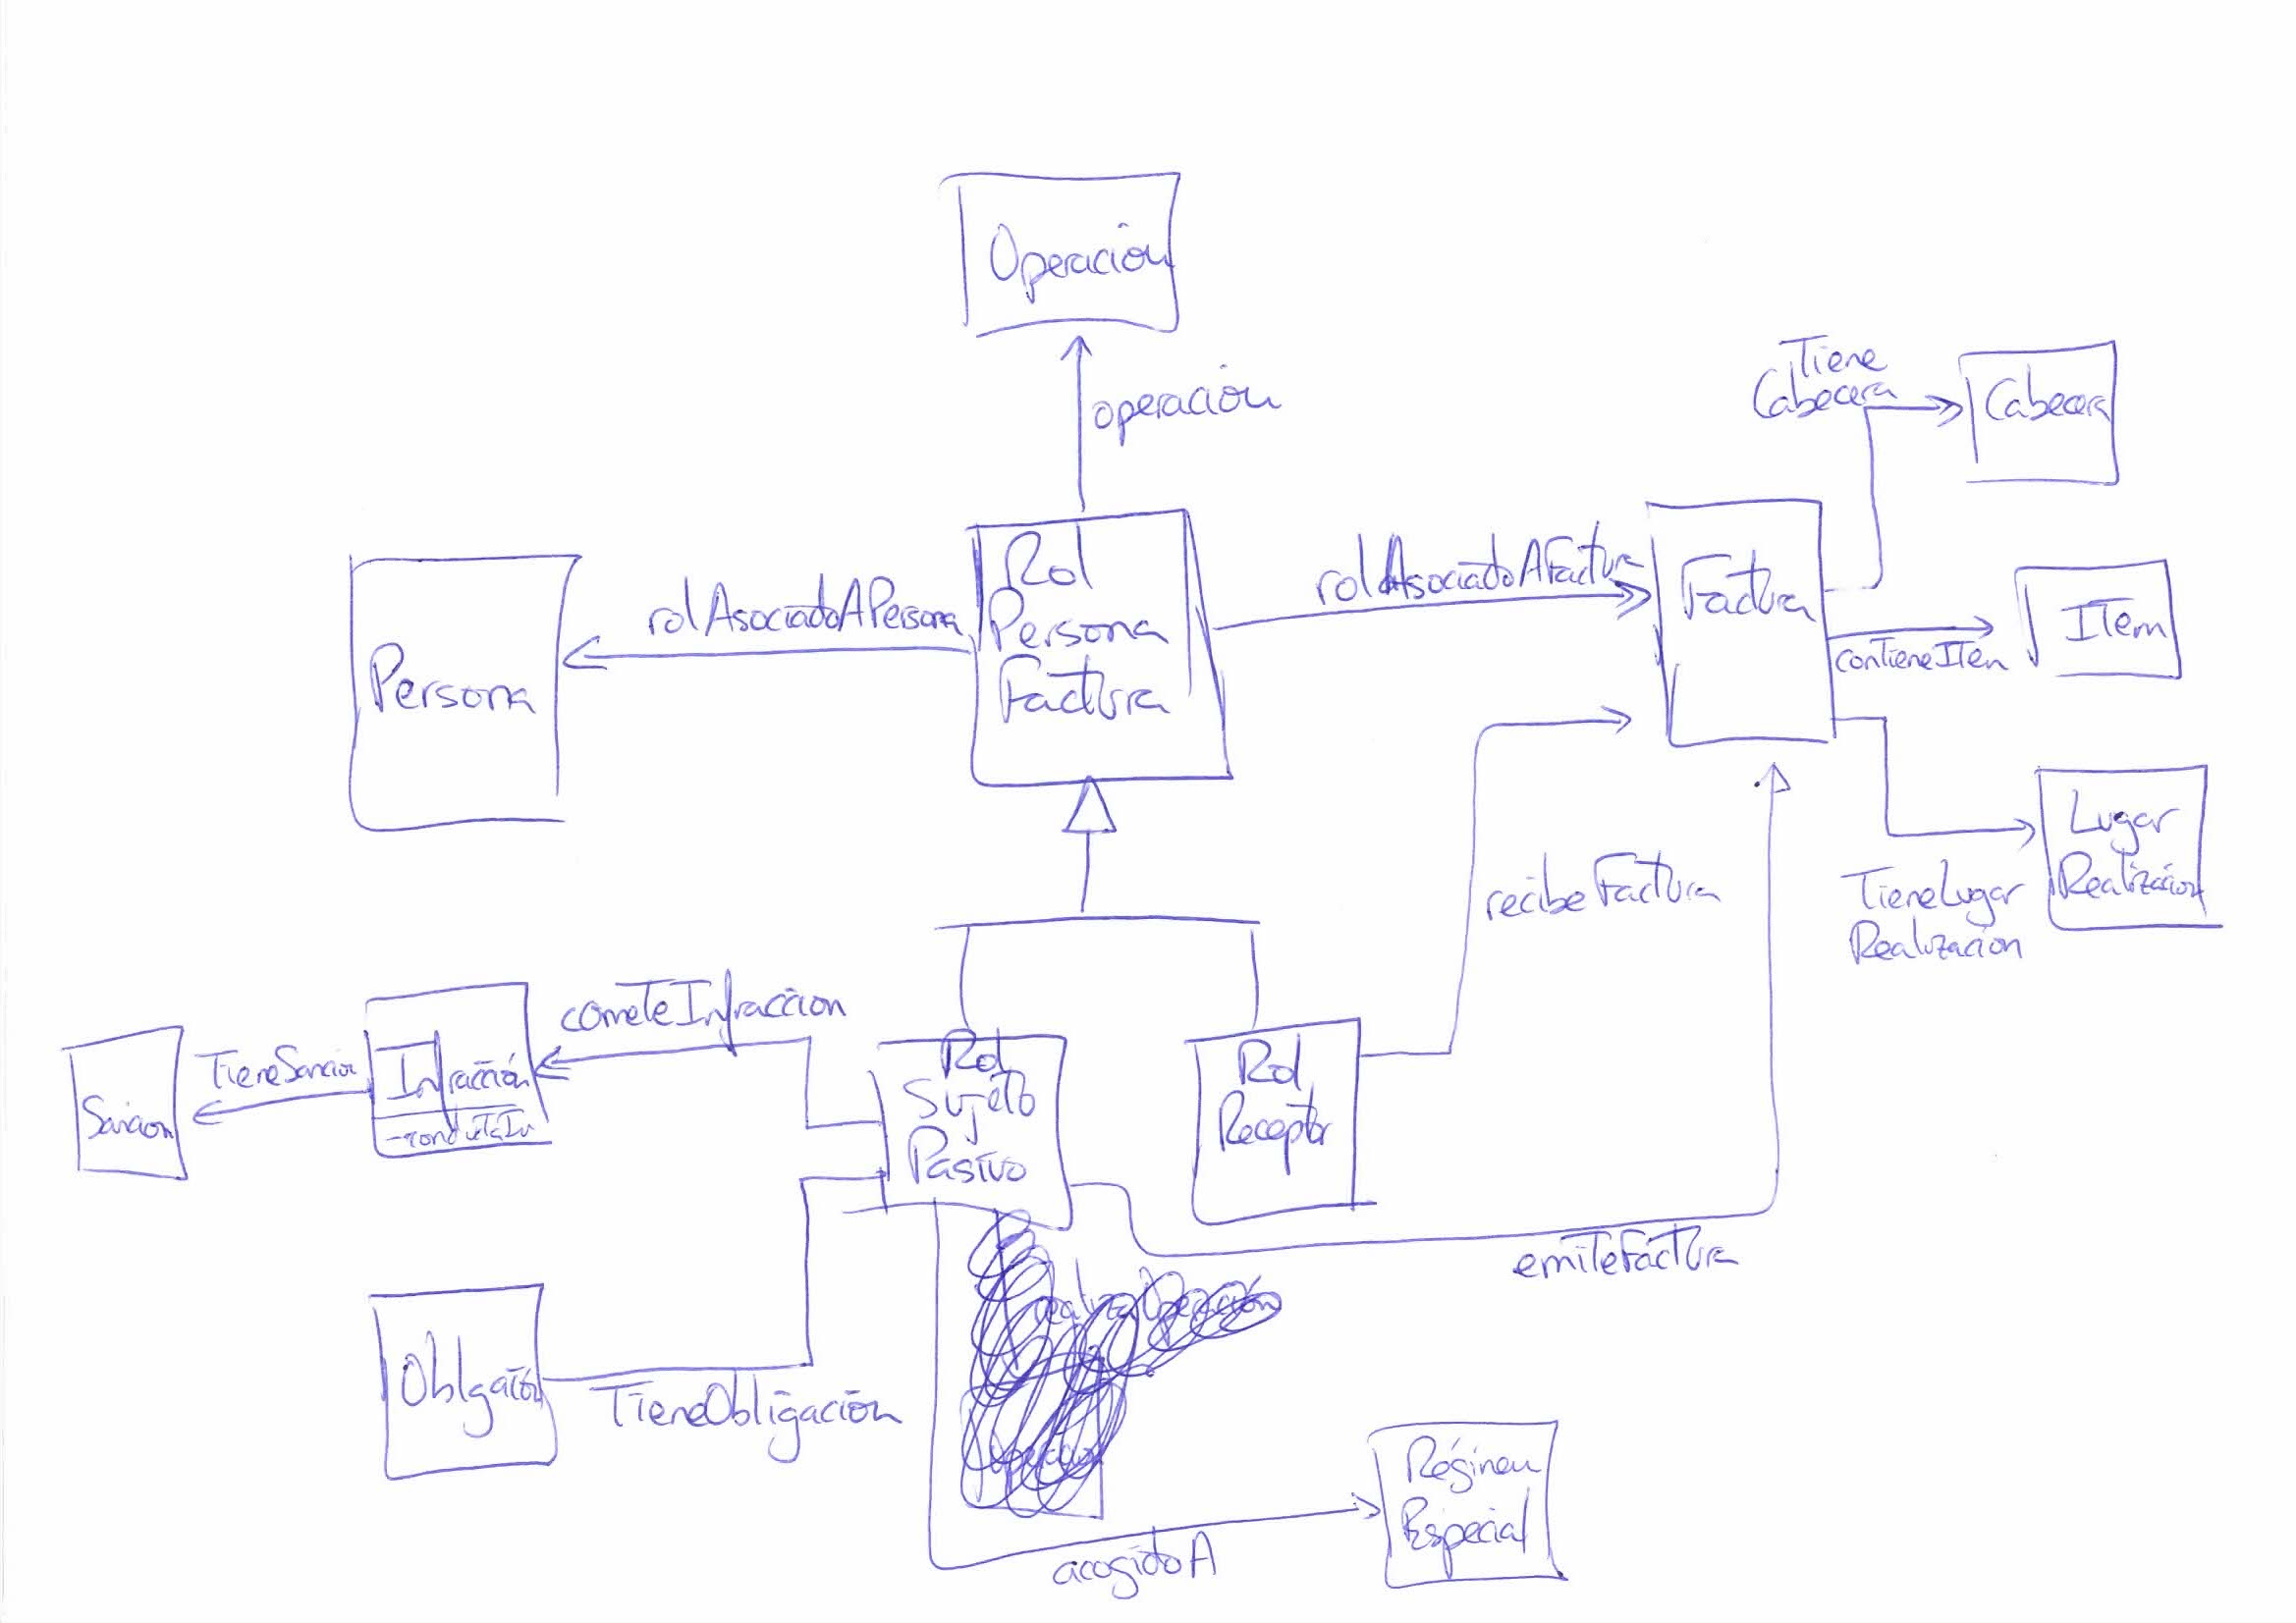 Operación
operación
Tiene
Cabecera
Cabecera
Persona
rolAsociadoAPersona
Rol
Persona
Factura
rolAsociadoAFactura
Factura
contieneITem
ITem
Lugar
Realización
TieneLugar
Realización
recibeFactura
Sancion
TieneSancion
Infracción
cometeInfraccion
Rol
Sujeto
Pasivo
Rol
Receptor
emiteFactura
Oblgación
TieneObligación
acogidoA
Régimen
Especial